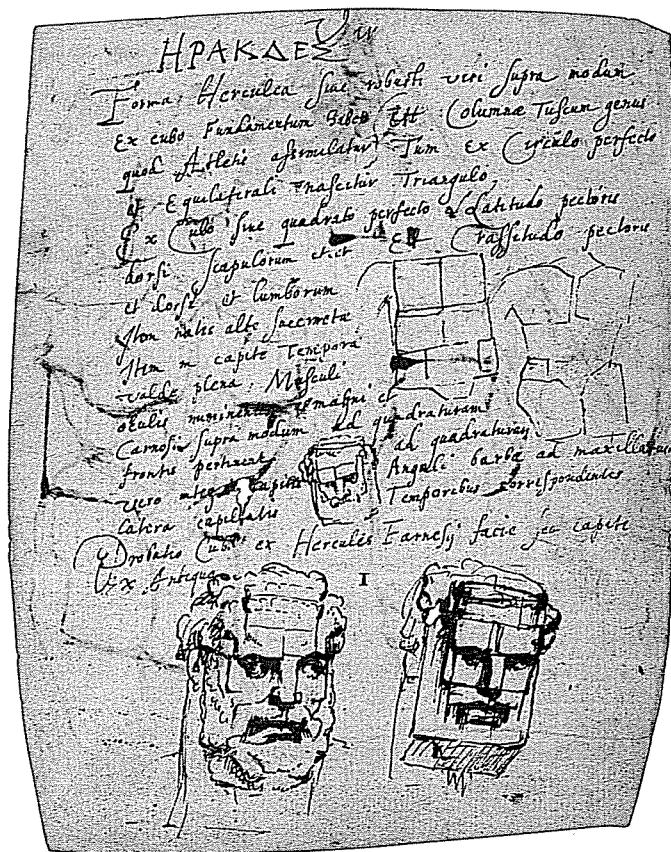 ΗΡΑΚΔΕΣ Vir
Forma Herculea sive robusti viri supra modum
Ex cubo Fundamentum habet Est Columnæ Tuscum genus
quod Atletis assimilatur Tum Ex Circulo perfecto
et Equilaterali nascitur Triangulo
Ex Cubo sive quadrato perfecto Latitudo pectoris
dorsi scapulorum et Crassitudo pectoris
et dorsi et lumborum
Item natis alte succincta
Item in capite Tempora
valde plena, Musculi
oculis magni et
Carnosi supra modum ad quadraturam
frontis pertinent ad quadraturam
vero capitis Anguli barbæ ad maxillarum
latera capillatis Temporibus correspondentes
Probatio Cubi ex Hercules Farnesij facie seu capite
Ex Antiquo
I